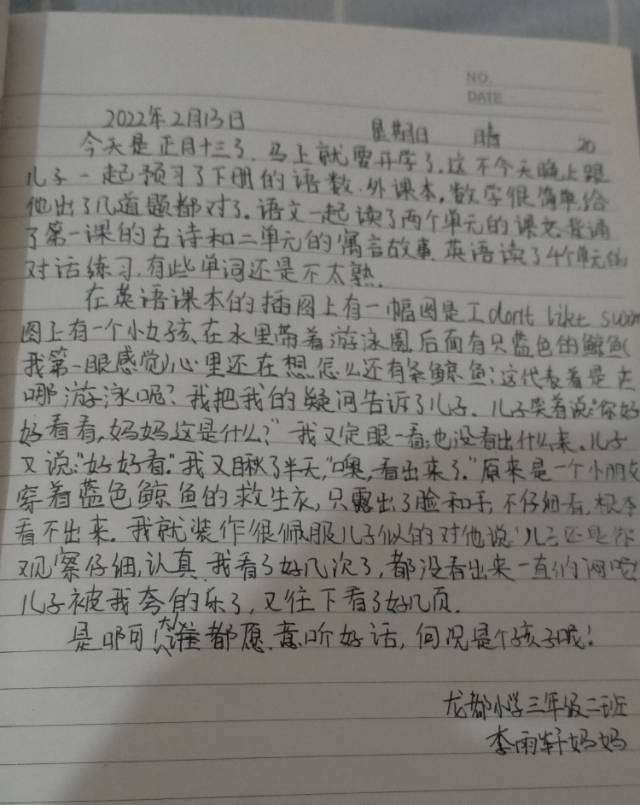 NO.
DATE
2022年2月13日 星期日 晴 20
今天是正月十三了,马上就要开学了,这不今天晚上跟
儿子一起预习了下册的语数.外课本,数学很简单,给
他出了几道题都对了。语文一起读了两个单元的课文,背诵
了第一课的古诗和二单元的寓言故事,英语读了4个单元的
对话练习,有些单词还是不太熟.
在英语课本的插图上有一幅图是I dont like swim
图上有一个小女孩在水里带着游泳圈,后面有只蓝色的鲸鱼(
我第一眼感觉)心里还在想,怎么还有条鲸鱼;这代表着是去
哪游泳呢?我把我的疑问告诉了儿子.儿子笑着说:"你好
好看看,妈妈这是什么?"我又定眼一看,也没看出什么来.儿子
又说:"好好看."我又瞅了半天,"噢,看出来了."原来是一个小朋友
穿着蓝色鲸鱼的救生衣,只露出了脸和手,不仔细看,根本
看不出来.我就装作很佩服儿子似的对他说"儿子还是你
观察仔细,认真,我看了好几次了,都没看出来一直
儿子被我夸的乐了,又往下看了好几页.
是啊可大谁都愿意听好话,何况是个孩子呢!
龙都小学三年级二班
李雨轩妈妈